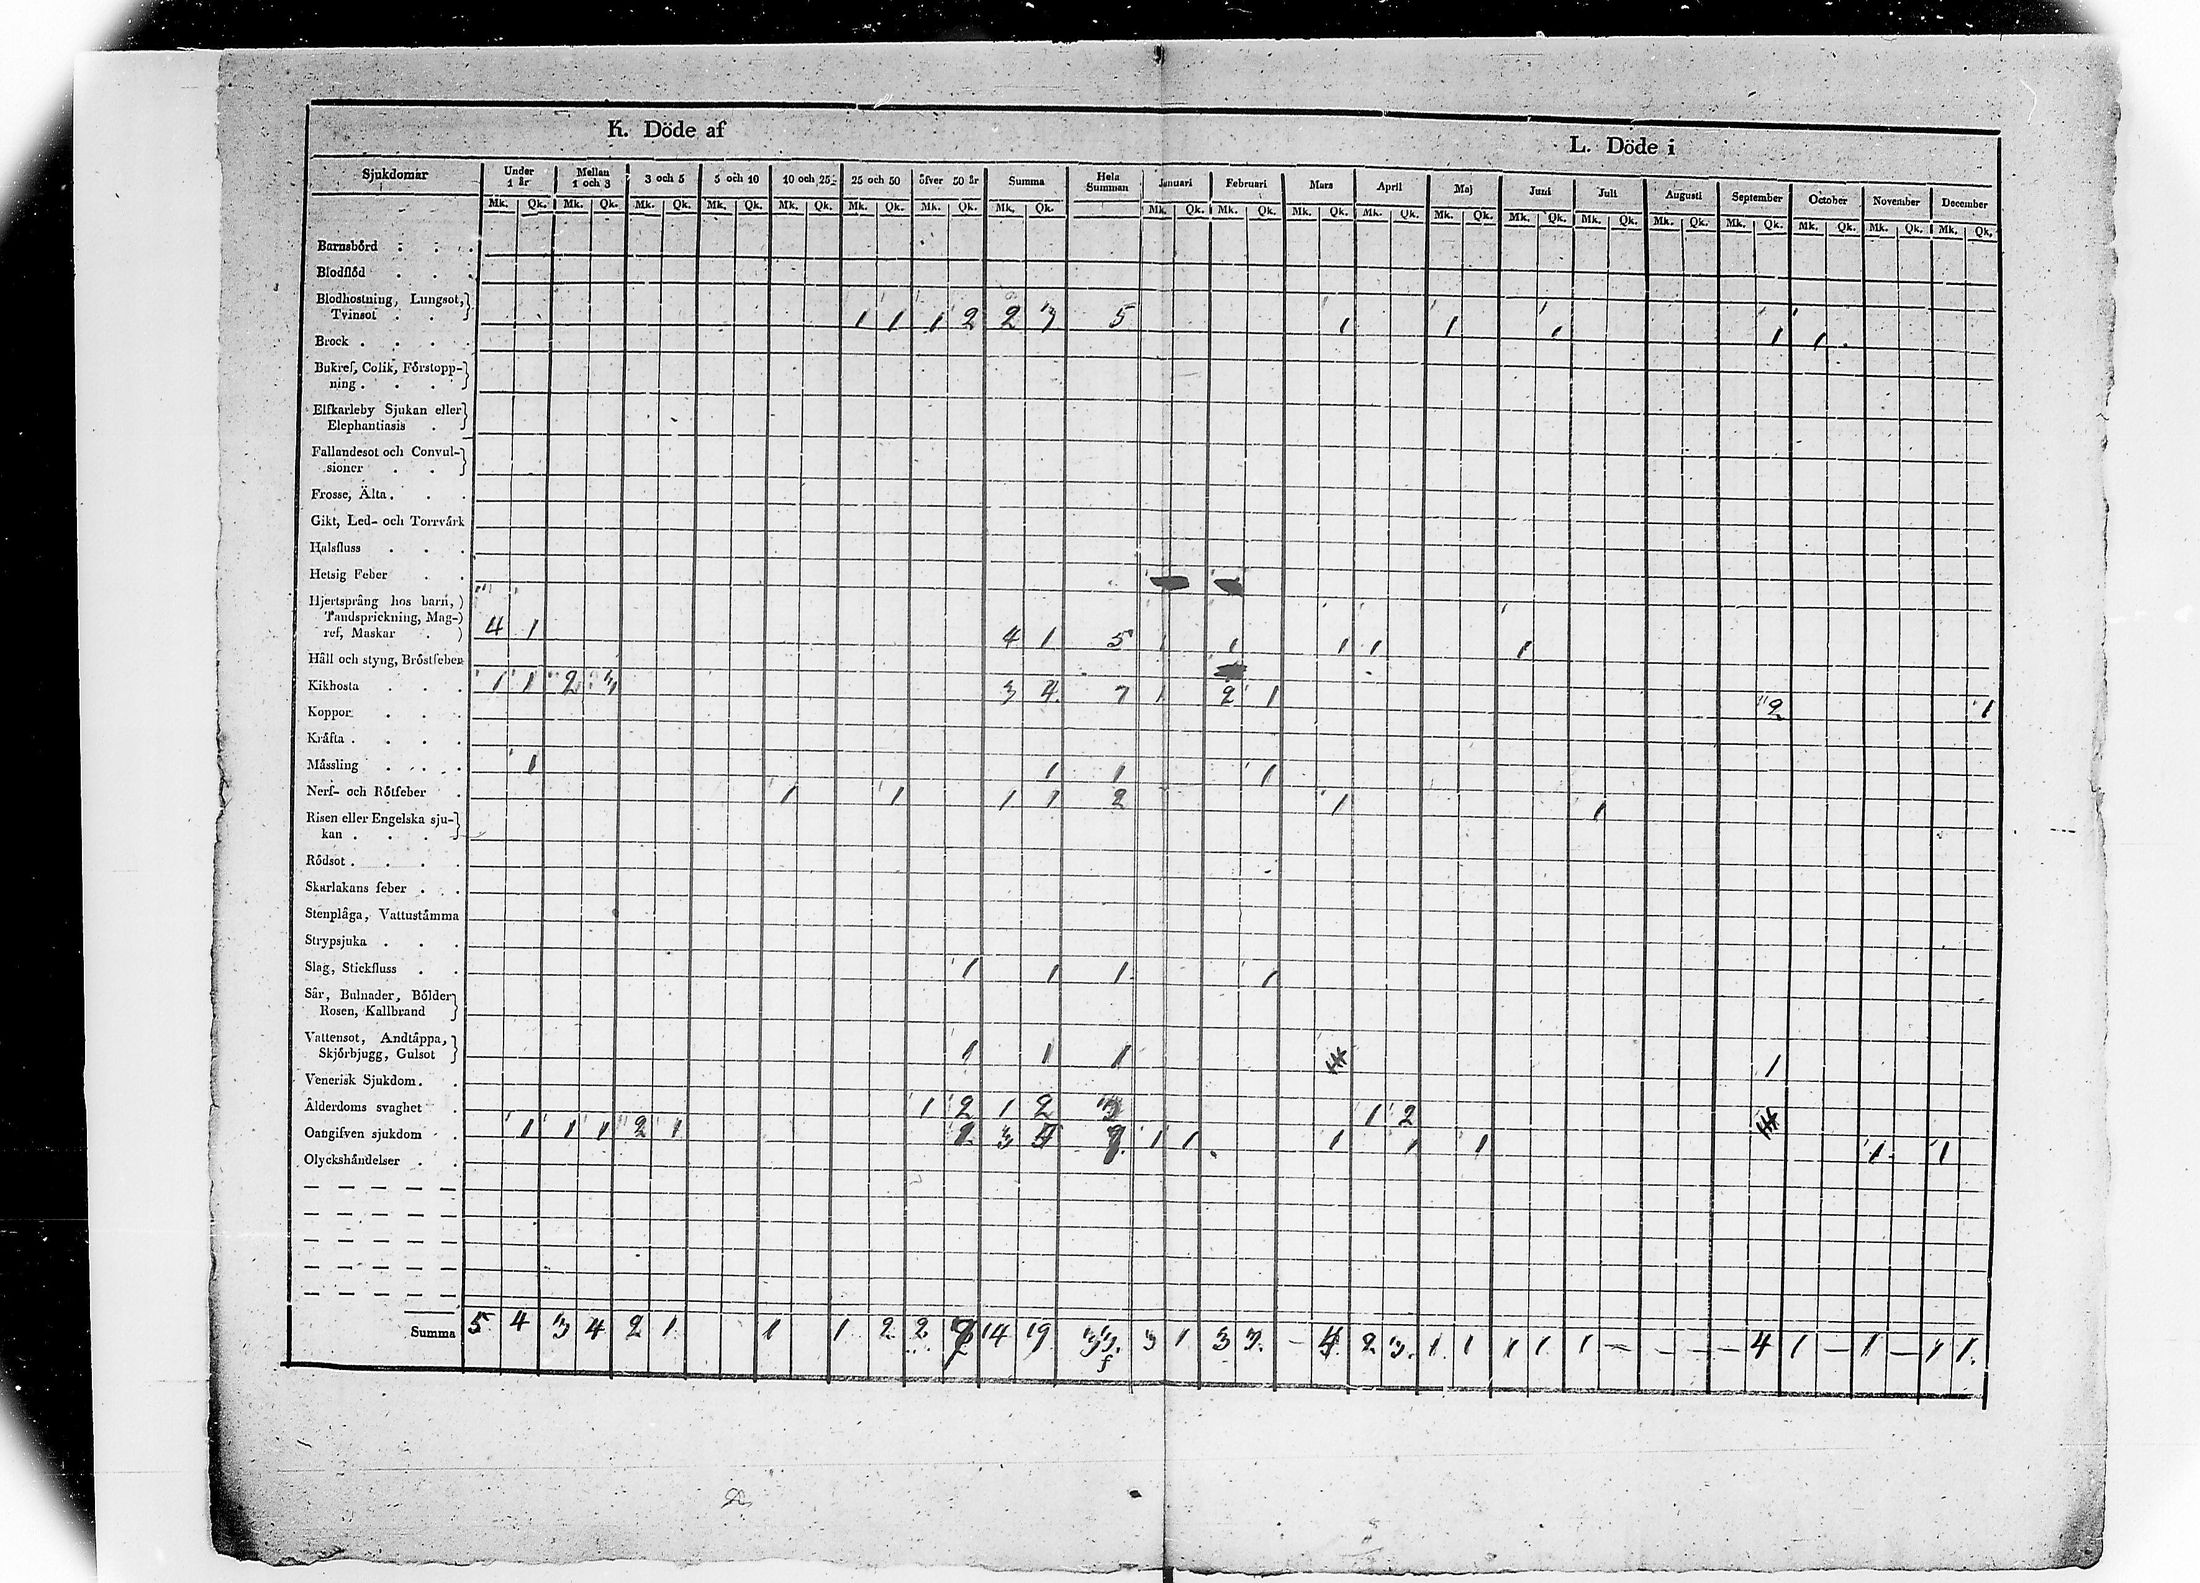 K. Döde af
L. Döde i
Sjukdomar Under 1 år Mellan 1 och 3 3 och 5 5 och 10 10 och 25 25 och 50 öfver 50 år Summa Hela Summan Januari Februari Mars April Maj Juni Juli Augusti September October November December
Mk. Qk. Mk. Qk. Mk. Qk. Mk. Qk. Mk. Qk. Mk. Qk. Mk. Qk. Mk. Qk. Mk. Qk. Mk. Qk. Mk. Qk. Mk. Qk. Mk. Qk. Mk. Qk. Mk. Qk. Mk. Qk. Mk. Qk. Mk. Qk. Mk. Qk. Mk. Qk.
Barnsbörd . . .
Blodflöd . . .
Blodhostning, Lungsot,
Tvinsot . . 1 1 1 2 2 3 5 1 1 1 1 1
Brock . . . .
Bukref, Colik, Förstopp-
ning . . .
Elfkarleby Sjukan eller
Elephantiasis .
Fallandesot och Convul-
sioner . .
Frosse, Älta . . .
Gikt, Led- och Torrvärk
Halsfluss . . .
Hetsig Feber . .
Hjertsprång hos barn,
Tandsprickning, Mag-
ref, Maskar . 4 1 4 1 5 1 1 1 1 1
Håll och styng, Bröstfeber
Kikhosta . . . 1 1 2 3 3 4 7 1 2 1 2 1
Koppor . . .
Kräfta . . . .
Mässling . . . . 1 1 1 1
Nerf- och Rötfeber . 1 1 1 1 2 1 1
Risen eller Engelska sju-
kan . . . .
Rödsot . . . .
Skarlakans feber . .
Stenplåga, Vattustämma
Strypsjuka . . .
Slag, Stickfluss . . 1 1 1 1
Sår, Bulnader, Bölder
Rosen, Kallbrand
Vattensot, Andtäppa,
Skjörbjugg, Gulsot 1 1 1 1
Venerisk Sjukdom . .
Ålderdoms svaghet . 1 2 1 2 3 1 2
Oangifven sjukdom . 1 1 1 2 1 3 1 1 1 1 1 1 1
Olyckshändelser . .
Summa 5 4 3 4 2 1 1 1 2 2 14 19 33. 3 1 3 3. - 2 3. 1 1 1 1 1 - - - - 4 1 - 1 - 1 1.